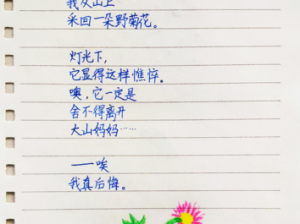 我从山上
采回一朵野菊花。
灯光下，
它显得这样憔悴。
噢，它一定是
舍不得离开
大山妈妈……
——唉
我真后悔。